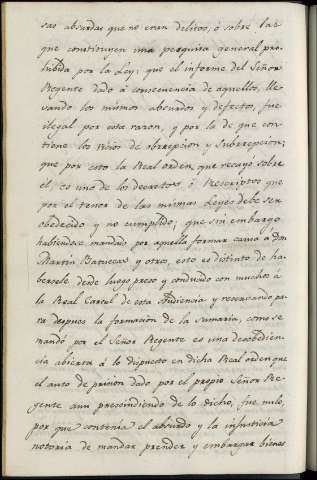 sas absurdas que no eran delitos, ó sobre las
que constituyen una pesquisa general pro-
hibida por la Ley: que el informe del Señor
Regente dado á consecuencia de aquellos, lle-
vando los mismos absurdos y defectos, fue
ilegal por esta razon, y por la de que con
tiene los vicios de obrrepcion y Subrrepcion;
que por esto la Real orden, que recayó sobre
él, es uno de los decretos ó Rescriptos que
por el tenor de las mismas Leyes debe ser
obedecido y no cumplido; que sin embargo
habiendose mandado por aquella formar causa á Don
Martin Batuecas y otros, esto es distinto de ha-
bersele desde luego preso y conducido con muchos á
la Real Carcel de esta Audiencia y reservando pa-
ra despues la formacion de la Sumaria, como se
mandó por el Señor Regente es una desobedien-
cia abierta á lo dispuesto en dicha Real orden que
el auto de prision dado por el propio Señor Re-
gente aun prescindiendo de lo dicho, fue nulo,
por que contenia el absurdo y la injusticia
notoria de mandar prender y embargar bienes